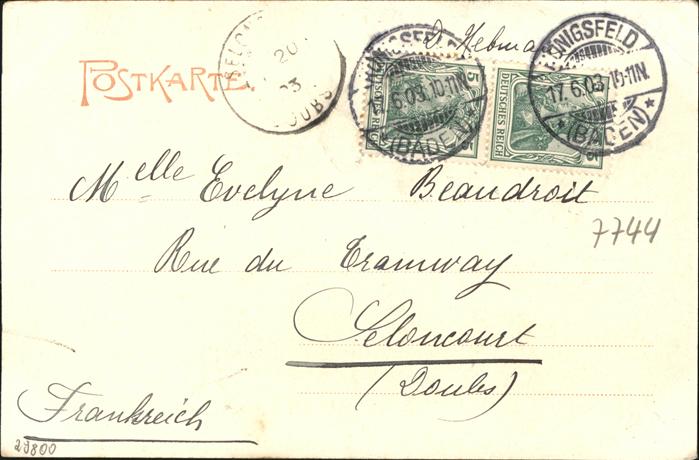 POSTKARTE.
20
KÖNIGSFELD
17.6.03.10-11N.
*(BADEN)*
5
DEUTSCHES REICH
KÖNIGSFELD
17.6.03.10-11N.
*(BADEN)*
5
DEUTSCHES REICH
Melle Evelyne Beaudroit
7744
Rue du Tramway
Seloncourt
(Doubs)
Frankreich
29800